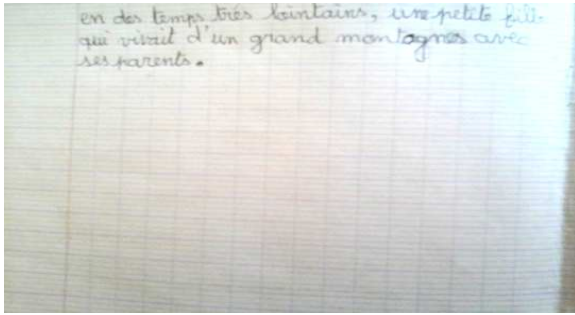 en des temps très lointains, une petite fill
qui vivait d'un grand montagnes avec
ses parents.